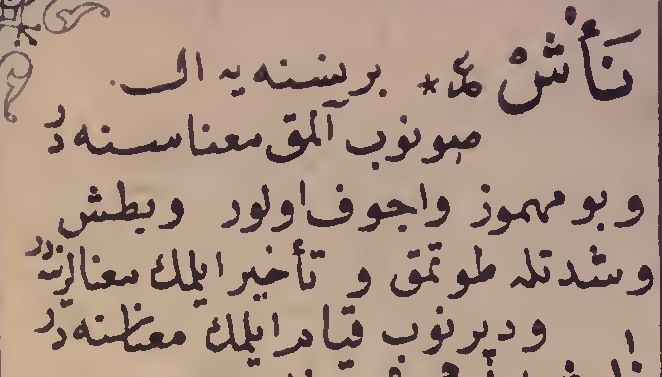 نَأْشْ مد * بر نسنه يه ال
صونوب آلمق معناسنه در
وبو مهموز واجوف اولور وبطش
وشدتله طوتمق و تأخير ايلمك معنالرينه در
وديرنوب قيام ايلمك معناسنه در